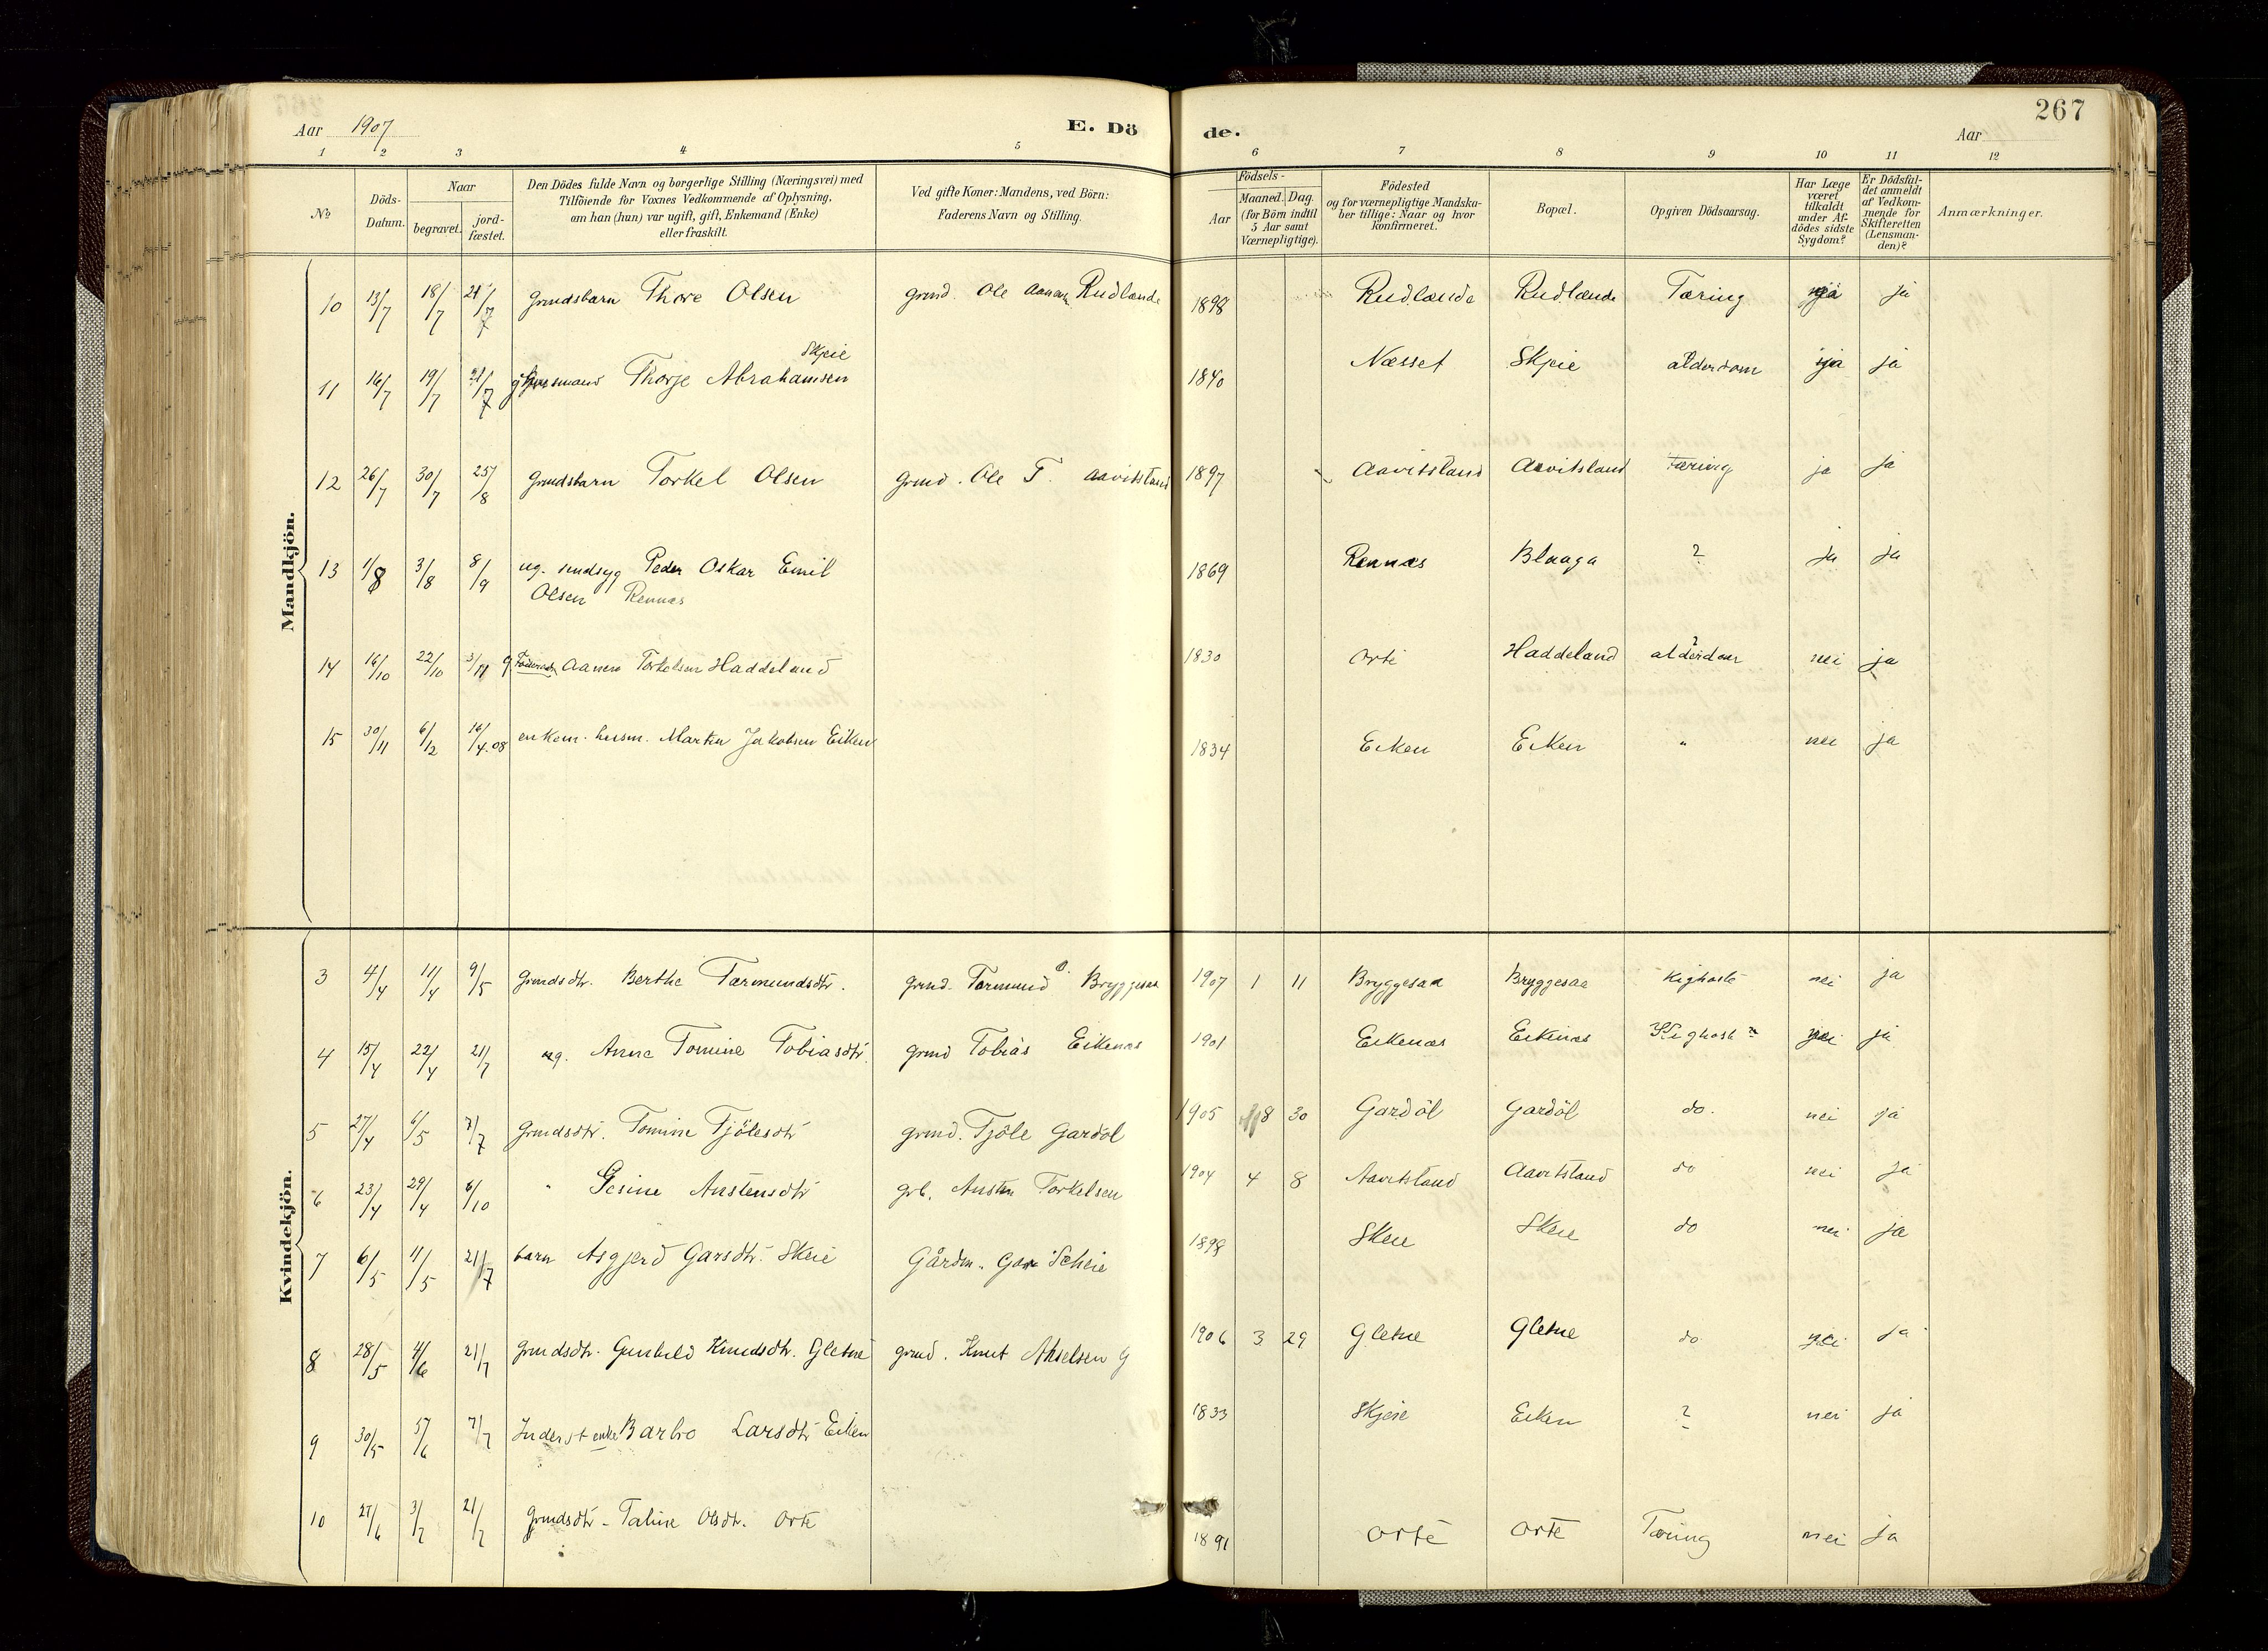 267
Aar 1907 E. Dö de. Aar
1 2 3 4 5 6 7 8 9 10 11 12
№
Döds-Datum.
Naar
begravet.
jord-fæstet.
Den Dödes fulde Navn og borgerlige Stilling (Næringsvei) med
Tilföiende for Voxnes Vedkommende af Oplysning,
om han (hun) var ugift, gift, Enkemand (Enke)
eller fraskilt.
Ved gifte Koner: Mandens, ved Börn:
Faderens Navn og Stilling.
Födsels-
Aar
Maaned. Dag.
(for Börn indtil
5 Aar samt
Værnepligtige).
Födested
og for værnepligtige Mandska-
ber tillige: Naar og hvor
konfirmeret.
Bopæl.
Opgiven Dödsaarsag.
Har Læge
været
tilkaldt
under Af-
dödes sidste
Sygdom?
Er Dödsfal-
det anmeldt
af Vedkom-
mende for
Skifteretten
(Lensman-
den)?
Anmærkninger.
Mandkjön.
10 13/7 18/7 21/7 grmdsbarn Thore Olsen grmd. Ole Aanen Rudlænde 1898 Rudlænde Rudlænde Tæring ja ja
Skjeie
11 16/7 19/7 21/7 Thorje Abrahamsen 1840 Næsset Skjeie alderdom ja ja
12 26/7 30/7 25/8 grmdsbarn Torkel Olsen grmd. Ole T. Aavitsland 1897 Aavitsland Aavitsland Tæring ja ja
13 1/8 3/8 8/9 ug. sindsyg Peder Oskar Emil 1869 Rennæs Blaaga ? ja ja
Olsen Rennæs
14 16/10 22/10 3/11 Aanen Torkelsen Haddeland 1830 Orte Haddeland alderdom ? nei ja
15 30/11 6/12 16/4.08 enkem. husm. Martin Jakobsen Eiken 1834 Eiken Eiken " nei ja
Kvindekjön.
3 4/4 11/4 9/5 grmdsdtr. Berthe Tarmundsdtr. grmd. Tormund O. Bryggesaa 1907 1 11 Bryggesaa Bryggesaa Kighoste nei ja
4 15/4 22/4 21/7 ug. Anne Tomine Tobiasdtr. grmd Tobias Eikenæs 1901 Eikenæs Eikenæs Kighoste nei ja
5 27/4 6/5 7/7 grmdsdtr. Tomine Tjölesdtr grmd. Tjöle Gardöl 1905 8 30 Gardöl Gardöl do. nei ja
6 23/4 29/4 6/10 " Gesine Anstensdtr grb. Ansten Torkelsen 1904 4 8 Aavitsland Aavitsland do nei ja
7 6/5 11/5 21/7 barn Asgjerd Garsdtr. Skeie Gårdm. Gare Scheie 1898 Skeie Skeie do nei ja
8 28/5 4/6 21/7 grmdsdtr. Gunhild Knudsdtr. Gletne grmd. Knut Akselsen G 1906 3 29 Gletne Gletne do nei ja
9 30/5 5/6 7/7 Inderst enke Barbro Larsdtr Eiken 1833 Skjeie Eiken ? nei ja
10 27/6 3/7 21/7 grmdsdtr - Taline Olsdtr. Orte 1891 Orte Orte Tæring nei ja